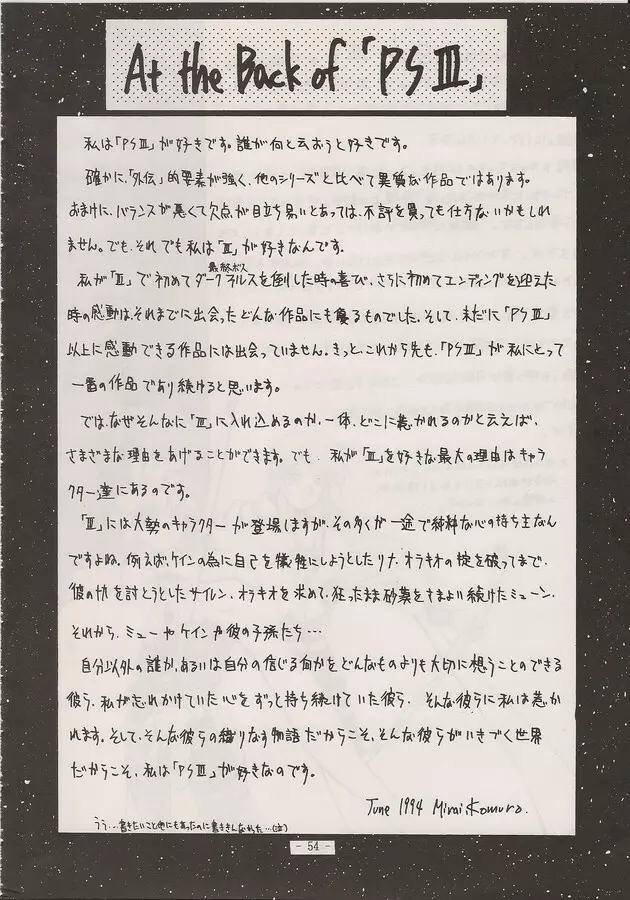 At the Back of 「PSⅢ」
私は「PSⅢ」が好きです。誰が何と云おうと好きです。
確かに、「外伝」的要素が強く、他のシリーズと比べて異質な作品ではあります。
おまけに、バランスが悪くて欠点が目立ち易いとあっては、不評を買っても仕方ないかもしれ
ません。でも、それでも私は「Ⅲ」が好きなんです。
最終ボス
私が「Ⅲ」で初めてダークネルスを倒した時の喜び、さらに初めてエンディングを迎えた
時の感動は、それまでに出会ったどんな作品にも優るものでした。そして、未だに「PSⅢ」
以上に感動できる作品には出会っていません。きっと、これから先も、「PSⅢ」が私にとって
一番の作品であり続けると思います。
では、なぜそんなに「Ⅲ」に入れ込めるのか、一体、どこに惹かれるのかと云えば、
さまざまな理由をあげることができます。でも、私が「Ⅲ」を好きな最大の理由はキャラ
クター達にあるのです。
「Ⅲ」には大勢のキャラクターが登場しますが、その多くが一途で純粋な心の持ち主なん
ですよね。例えば、ケインの為に自己を犠牲にしようとしたリナ、オラキオの掟を破ってまで、
彼の仇を討とうとしたサイレン、オラキオを求めて、狂ったまま砂漠をさまよい続けたミューン、
それから、ミューやケインや彼の子孫たち…
自分以外の誰か、あるいは自分の信じる何かをどんなものよりも大切に想うことのできる
彼ら、私が忘れかけていた心をずっと持ち続けていた彼ら、そんな彼らに私は惹か
れます。そして、そんな彼らの織りなす物語だからこそ、そんな彼らがいきづく世界
だからこそ、私は「PSⅢ」が好きなのです。
June 1994 Mirai.Komuro.
うう…書きたいこと他にもあったのに書ききんなかった…(泣)
- 54 -